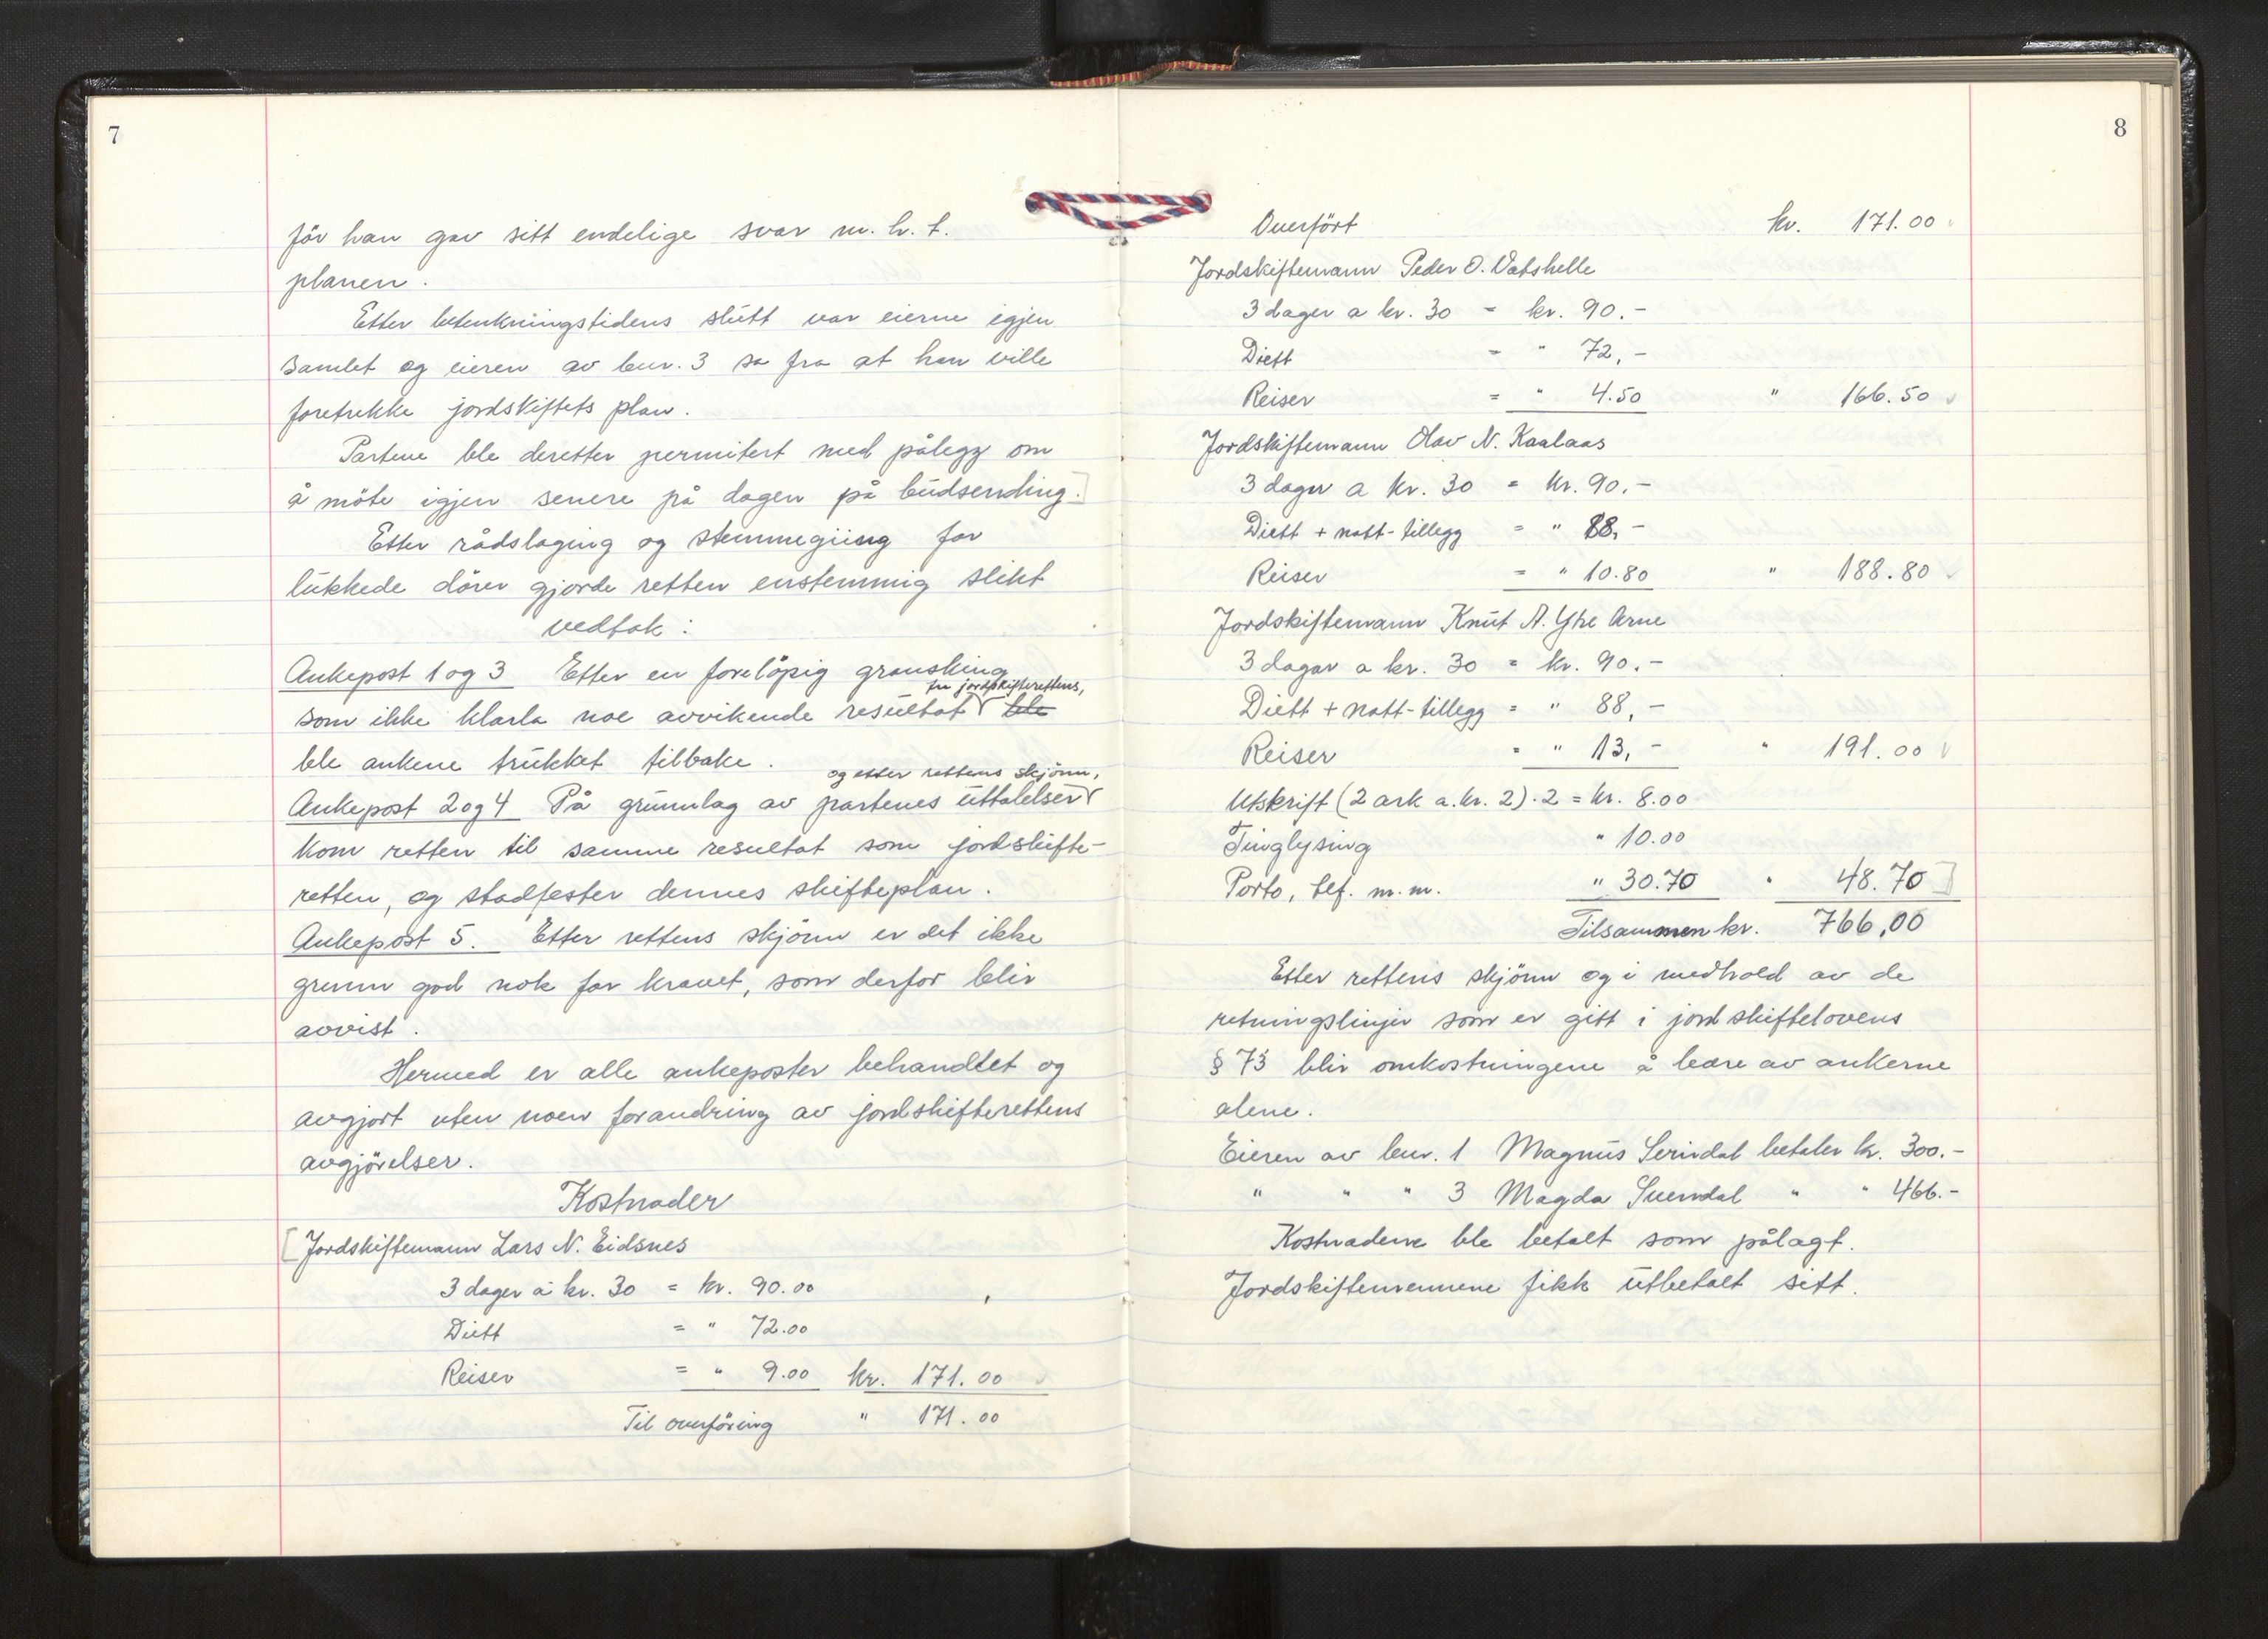 7
för han gav sitt endelige svar m. h. t.
planen.
Etter betenkningstidens slutt var eierne igjen
samlet og eieren av bnr. 3 sa fra at han ville
foretrekke jordskiftets plan.
Partene ble deretter permitert med pålegg om
å möte igjen senere på dagen på budsending.]
Etter rådslaging og stemmegiing for
lukkede dörer gjorde retten enstemmig slikt
vedtak:
Ankepost 1 og 3 Etter en forelöpig gransking
fra jordskifterettens,
som ikke klarla noe avvikende resultat ble
ble ankene trukket tilbake.
og etter rettens skjönn,
Ankepost 2 og 4 På grunnlag av partenes uttalelser
kom retten til samme resultat som jordskifte-
retten, og stadfester dennes skifteplan.
Ankepost 5. Etter rettens skjönn er det ikke
grunn god nok for kravet, som derfor blir
avvist.
Hermed er alle ankeposter behandlet og
avgjort uten noen forandring av jordskifterettens
avgjörelser.
Kostnader
[Jordskiftemann Lars N. Eidsnes
3 dager à kr. 30 = kr. 90.00
Diett = " 72.00
Reiser = " 9.00 kr. 171.00
Til overföring " 171.00
8
Overfört kr. 171.00
Jordskiftemann Peder O. Vatshelle
3 dager a kr. 30 = kr. 90.-
Diett = " 72,-
Reiser = " 4.50 " 166.50
Jordskiftemann Olav N. Kaalaas
3 dager a kr. 30 = kr. 90.-
Diett + natt-tillegg = " 88,-
Reiser = " 10.80 " 188.80
Jordskiftemann Knut A. Ytre Arne
3 dagar a kr. 30 = kr. 90.-
Diett + natt-tillegg = " 88,-
Reiser = " 13,- " 191.00
Utskrift (2 ark a. kr. 2).2 = kr. 8.00
Tinglysing " 10.00
Porto, tlf. m.m. " 30.70 " 48.70]
Tilsammen kr. 766,00
Etter rettens skjönn og i medhold av de
retningslinjer som er gitt i jordskiftelovens
§ 73 blir omkostningene å bære av ankerne
alene.
Eieren av bnr. 1 Magnus betaler kr. 300.-
" " " 3 Magda " " 466.-
Kostnadene ble betalt som pålagt.
Jordskiftemennene fikk utbetalt sitt.